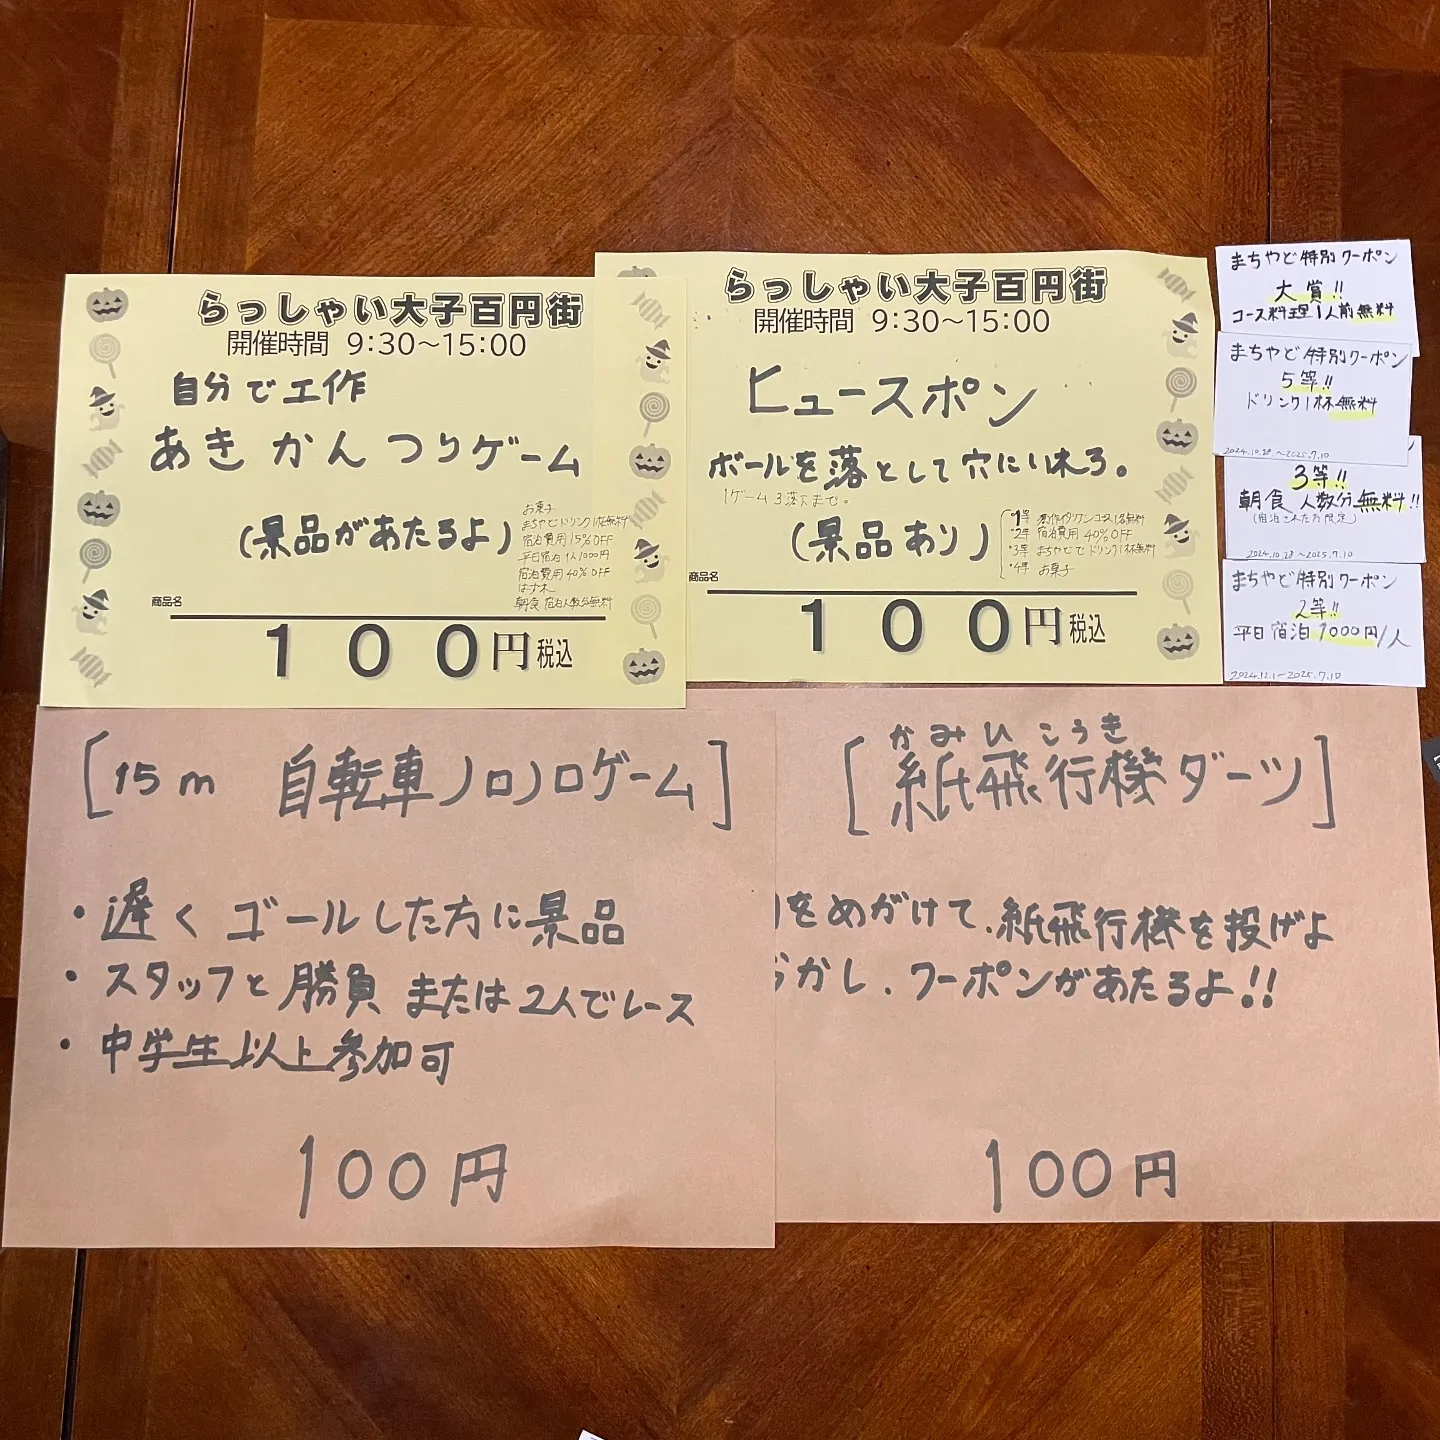 らっしゃい大子百円街
開催時間 9:30～15:00
自分で工作
あきかんつりゲーム
(景品があたるよ)
お菓子
まちやどドリンク1杯無料
宿泊費用15%OFF
平日宿泊1人1000円
宿泊費用40%OFF
はずれ
朝食 宿泊人数分無料
商品名
100円税込
らっしゃい大子百円街
開催時間 9:30～15:00
ヒュースポン
ボールを落として穴にいれろ。
1ゲーム3落下まで。
(景品あり)
・1等 コース1名無料
・2等 宿泊費用40%OFF
・3等 まちやどでドリンク1杯無料
・4等 お菓子
商品名
100円税込
まちやど特別クーポン
大賞!!
コース料理1人前無料
まちやど特別クーポン
5等!!
ドリンク1杯無料
2024.10.28.～2025.7.10
3等!!
朝食 人数分無料!!
(宿泊された方限定)
2024.10.28～2025.7.10
まちやど特別クーポン
2等!!
平日宿泊1000円/人
2024.12.1～2025.7.10
[15m 自転車ノロノロゲーム]
・遅くゴールした方に景品
・スタッフと勝負 または2人でレース
・中学生以上参加可
100円
かみひこうき
[紙飛行機ダーツ]
をめがけて、紙飛行機を投げよ
かし、クーポンがあたるよ!!
100円